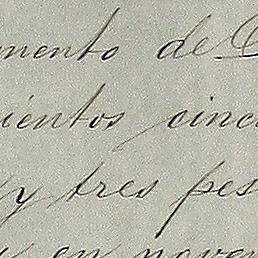 mento de
cientos cinc
y tres pes
y en nove